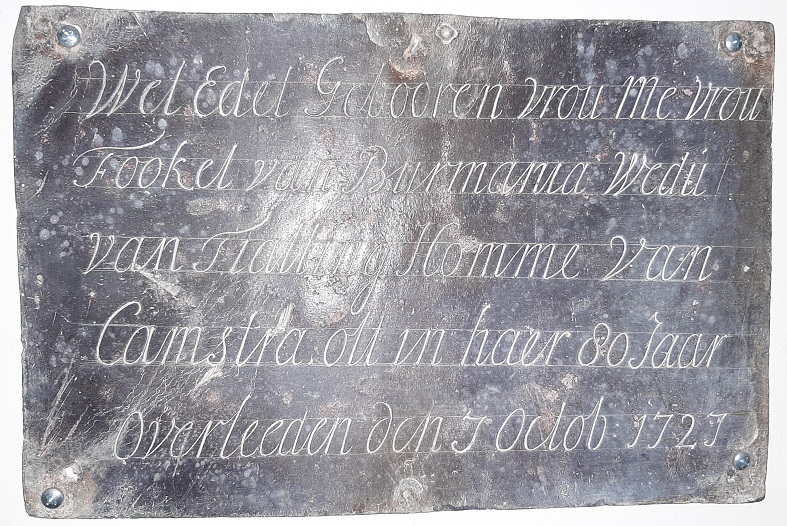 Wel Edel Gebooren vrou Me vrou
Fookel van Burmania Wedú
van Tialling Homme Van
Camstra. olt in haer 80 Jaar
Overleeden den 7 Octob. 1727